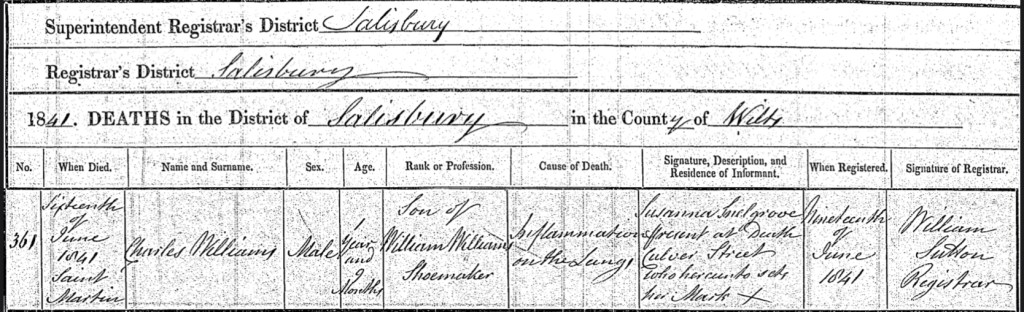 Superintendent Registrar's District Salisbury
Registrar's District Salisbury
1841. DEATHS in the District of Salisbury in the County of Wilts
No. When Died. Name and Surname. Sex. Age. Rank or Profession. Cause of Death. Signature, Description, and Residence of Informant. When Registered. Signature of Registrar.
361
Sixteenth
of
June
1841
Saint
Martin
Charles Williams
Male
1
Year
and
Months
Son of
William Williams
Shoemaker
Inflammation
on the Lungs
Susanna Snelgrove
Present at Death
Culver Street
Who hereunto sets
her Mark X
Nineteenth
of
June
1841
William
Sutton
Registrar